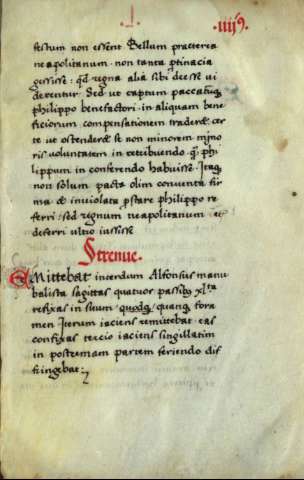 festum non essent Bellum praeterea
neapolitanum non tanta ꝑtinacia
gessisse: qᵈ regna alia sibi deesse ui
derentur. Sed ut captum paccatūqꝫ
philippo benefactori in aliquam bene
ficiorum compensationem traderet cer
te ut ostenderet se non minorem mino
ris voluntatem in retribuendo q̄ phi
lippum in conferendo habuisse. Itaqꝫ
non solum pacta olim conventa fir
ma et inviolata p̄stare philippo re
ferri: sed regnum neapolitanum et
deferri ultro iussisse
Strenue.
EMittebat interdum Alfonsus manu
balista sagittas quatuor passibꝫ xlᵗᵃ
refixas in suum quodqꝫ fora
men Iterum iaciens remittebat eas
confixas tercio iaciens singillatim
in postremam partem feriendo dif
fringebat: